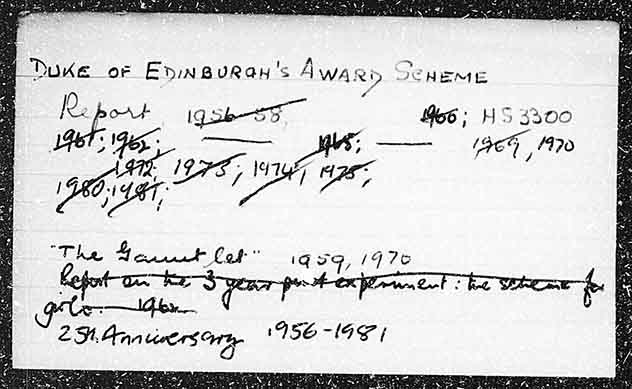 DUKE OF EDINBURGH'S AWARD SCHEME
Report 1956-58, 1966; HS3300
1961; 1962; — 1965; — 1969, 1970
1972; 1973; 1974; 1975;
1980; 1981;
"The Gauntlet" 1959, 1970
Report on the 3 year experiment: the scheme for
girls. 196
25th. Anniversary 1956-1981